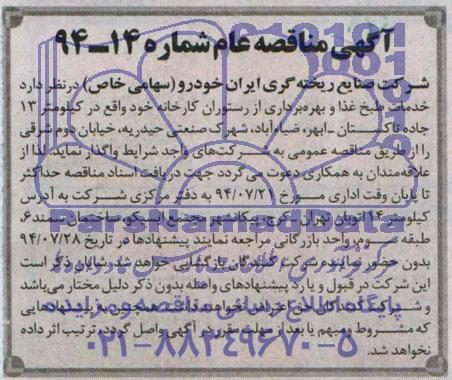 آگهی مناقصه عام شماره ۱۴ــ۹۴
شرکت صنایع ریخته گری ایران خودرو (سهامی خاص) درنظر دارد
خدمات طبخ غذا و بهره‌برداری از رستوران کارخانه خود واقع در کیلومتر ۱۳
جاده تاکستان ـ ابهر، ضیاءآباد، شهرک صنعتی حیدریه، خیابان دوم شرقی
را از طریق مناقصه عمومی به شرکت‌های واجد شرایط واگذار نماید، لذا از
علاقه‌مندان به همکاری دعوت می گردد جهت دریافت اسناد مناقصه حداکثر
تا پایان وقت اداری مورخ ۹۴/۰۷/۲ به دفتر مرکزی شرکت به آدرس
کیلومتر ۱۴ اتوبان تهران ـ کرج، پیکانشهر مجتمع ایسیکو، ساختمان سمند ۶،
طبقه سوم، واحد بازرگانی مراجعه نمایند پیشنهادها در تاریخ ۹۴/۰۷/۲۸
بدون حضور نماینده شرکت کنندگان بازگشایی خواهد شد. شایان ذکر است
این شرکت در قبول و یا رد پیشنهادهای واصله بدون ذکر دلیل مختار می‌باشد
و شرکت کنندگان حق اعتراض نخواهند داشت. همچنین به پیشنهادهایی
که مشروط و مبهم یا بعد از مهلت مقرر در آگهی واصل گردد، ترتیب اثر داده
نخواهد شد.
ParsNamadData
پایگاه اطلاع رسانی مناقصه و مزایده
۰۲۱-۸۸۳۴۹۶۷۰-۵